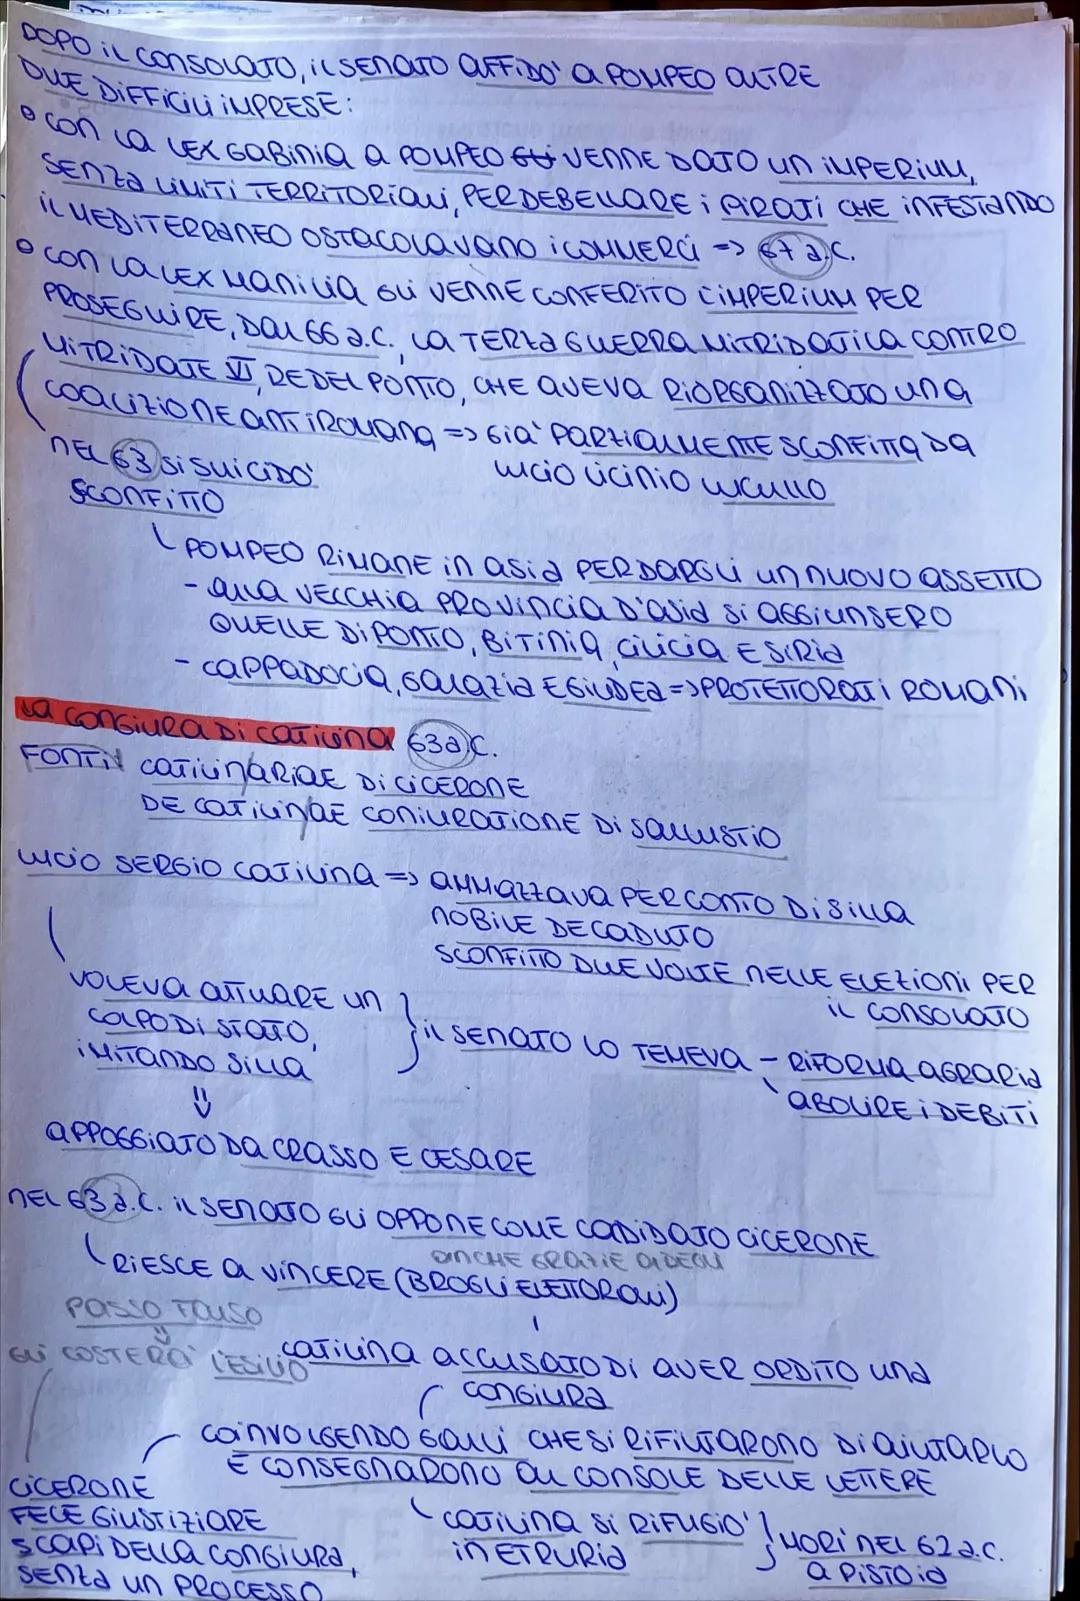 DOPO IL CONSOLATO, IL SENATO AFFIDO' A POMPEO ALTRE
DUE DIFFICILI IMPRESE:
• CON LA LEX GABINIA A POMPEO VENNE DATO UN IMPERIUM,
SENZA LIMITI TERRITORIALI, PER DEBELLARE I PIRATI CHE INFESTANDO
IL MEDITERRANEO OSTACOLAVANO I COMMERCI => 67 a.C.
• CON LA LEX MANILIA GLI VENNE CONFERITO L'IMPERIUM PER
PROSEGUIRE, DAL 66 a.C., LA TERZA GUERRA MITRIDATICA CONTRO
MITRIDATE VI, RE DEL PONTO, CHE AVEVA RIORGANIZZATO UNA
COALIZIONE ANTIROMANA => GIA' PARZIALMENTE SCONFITTA DA
LUCIO LICINIO LUCULLO
NEL 63 SI SUICIDO'
SCONFITTO
POMPEO RIMANE IN ASIA PER DARGLI UN NUOVO ASSETTO
- ALLA VECCHIA PROVINCIA D'ASIA SI AGGIUNSERO
QUELLE DI PONTO, BITINIA, CILICIA E SIRIA
- CAPPADOCIA, GALAZIA E GIUDEA => PROTETTORATI ROMANI
LA CONGIURA DI CATILINA 63 a.C.
FONTI CATILINARIAE DI CICERONE
DE CATILINAE CONIURATIONE DI SALLUSTIO
LUCIO SERGIO CATILINA => AMMAZZAVA PER CONTO DI SILLA
NOBILE DECADUTO
SCONFITTO DUE VOLTE NELLE ELEZIONI PER
IL CONSOLATO
VOLEVA ATTUARE UN
COLPO DI STATO,
IMITANDO SILLA
IL SENATO LO TEMEVA - RIFORMA AGRARIA
ABOLIRE I DEBITI
APPOGGIATO DA CRASSO E CESARE
NEL 63 a.C. IL SENATO GLI OPPONE COME CADIDATO CICERONE
ANCHE GRAZIE A DEGLI
RIESCE A VINCERE (BROGLI ELETTORALI)
PASSO FALSO
GLI COSTERA' L'ESILIO
CATILINA ACCUSATO DI AVER ORDITO UNA
CONGIURA
COINVOLGENDO GALLI CHE SI RIFIUTARONO DI AIUTARLO
E CONSEGNARONO AL CONSOLE DELLE LETTERE
CICERONE
FECE GIUSTIZIARE
5 CAPI DELLA CONGIURA,
SENZA UN PROCESSO
CATILINA SI RIFUGIO'
IN ETRURIA
MORI' NEL 62 a.C.
A PISTOIA